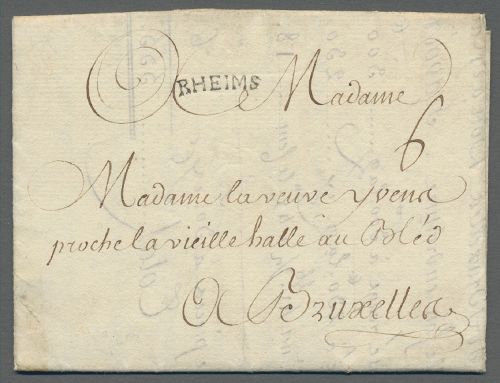 A Madame
RHEIMS
6
Madame la veuve yvens
proche la vieille halle au Bléd
A Bruxelles